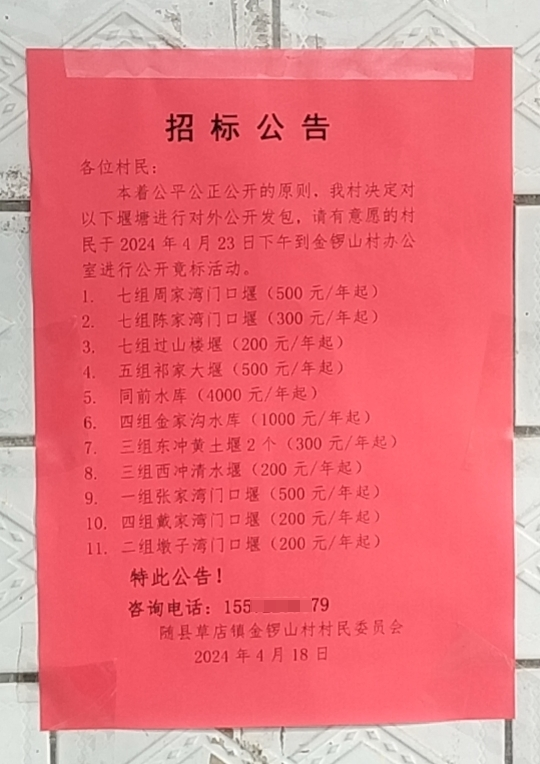 招标公告
各位村民：
本着公平公正公开的原则、我村决定对
以下堰塘进行对外公开发包，请有意愿的村
民于2024年4月23日下午到金锣山村办公
室进行公开竟标活动。
1. 七组周家湾门口堰（500元/年起）
2. 七组陈家湾门口堰（300元/年起）
3. 七组过山楼堰（200元/年起）
4. 五组祁家大堰（500元/年起）
5. 同前水库（4000元/年起）
6. 四组金家沟水库（1000元/年起）
7. 三组东冲黄土堰2个（300元/年起）
8. 三组西冲清水堰（200元/年起）
9. 一组张家湾门口堰（500元/年起）
10. 四组戴家湾门口堰（200元/年起）
11. 二组墩子湾门口堰（200元/年起）
特此公告！
咨询电话：155 79
随县草店镇金锣山村村民委员会
2024年4月18日